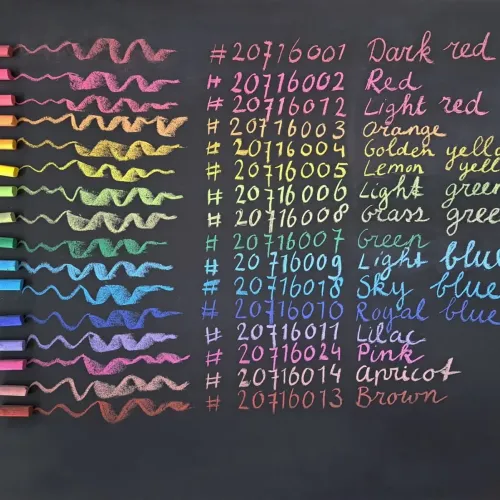 #20716001 Dark red
#20716002 Red
#20716012 Light red
#20716003 Orange
#20716004 Golden yello
#20716005 Lemon yell
#20716006 Light green
#20716008 Grass gree
#20716007 Green
#20716009 Light blue
#20716018 Sky blue
#20716010 Royal blue
#20716011 Lilac
#20716024 Pink
#20716014 Apricot
#20716013 Brown